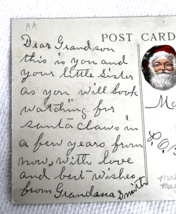 AA
POST CARD
Dear Grandson
this is you and
your little sister
as you will look
watching for
santa claws in
a few years from
now, with love
and best wishes
from Grandma Smith